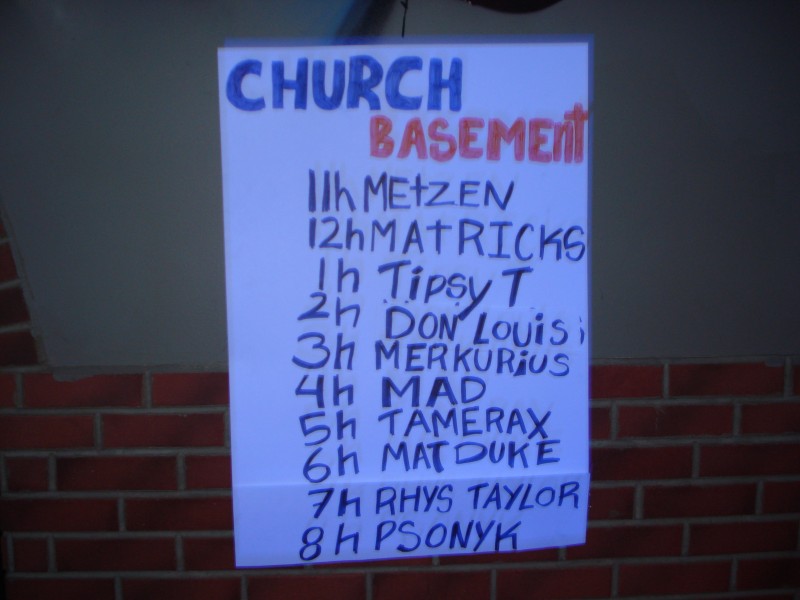 CHURCH
BASEMENt
11h MEtZEN
12h MAtRICKS
1h Tipsy T
2h DON LOUiS
3h MERKURiUS
4h MAD
5h TAMERAX
6h MAT DUKE
7h RHYS TAYLOR
8h PSONYK